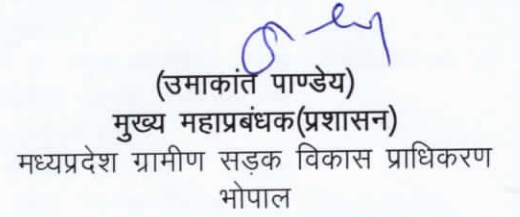 (उमाकांत पाण्डेय)
मुख्य महाप्रबंधक(प्रशासन)
मध्यप्रदेश ग्रामीण सड़क विकास प्राधिकरण
भोपाल